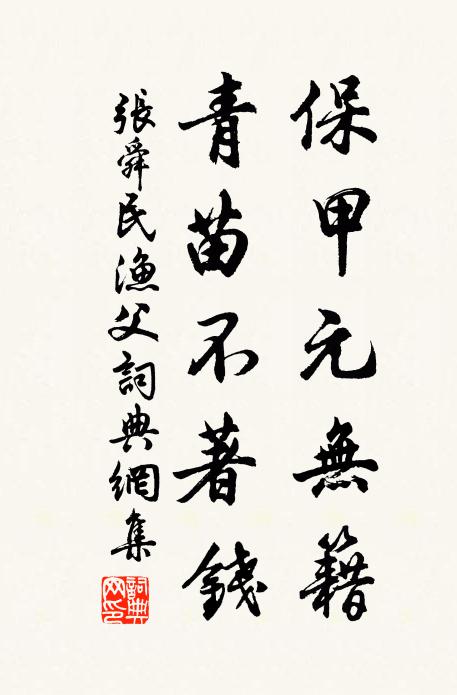 保甲元無籍
青苗不著錢
張舜民漁父詞典網集
詞典网印